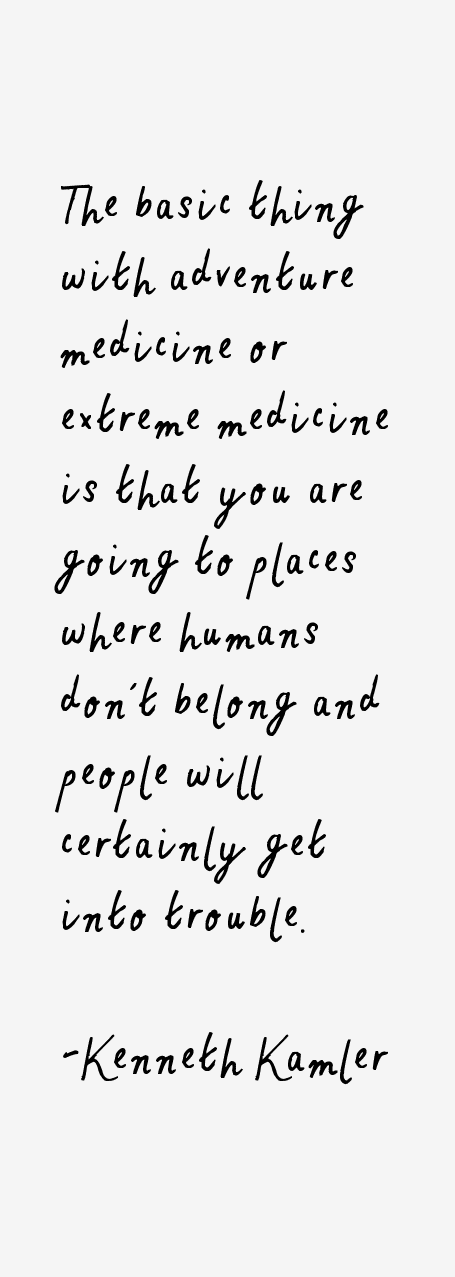 The basic thing
with adventure
medicine or
extreme medicine
is that you are
going to places
where humans
don't belong and
people will
certainly get
into trouble.
-Kenneth Kamler